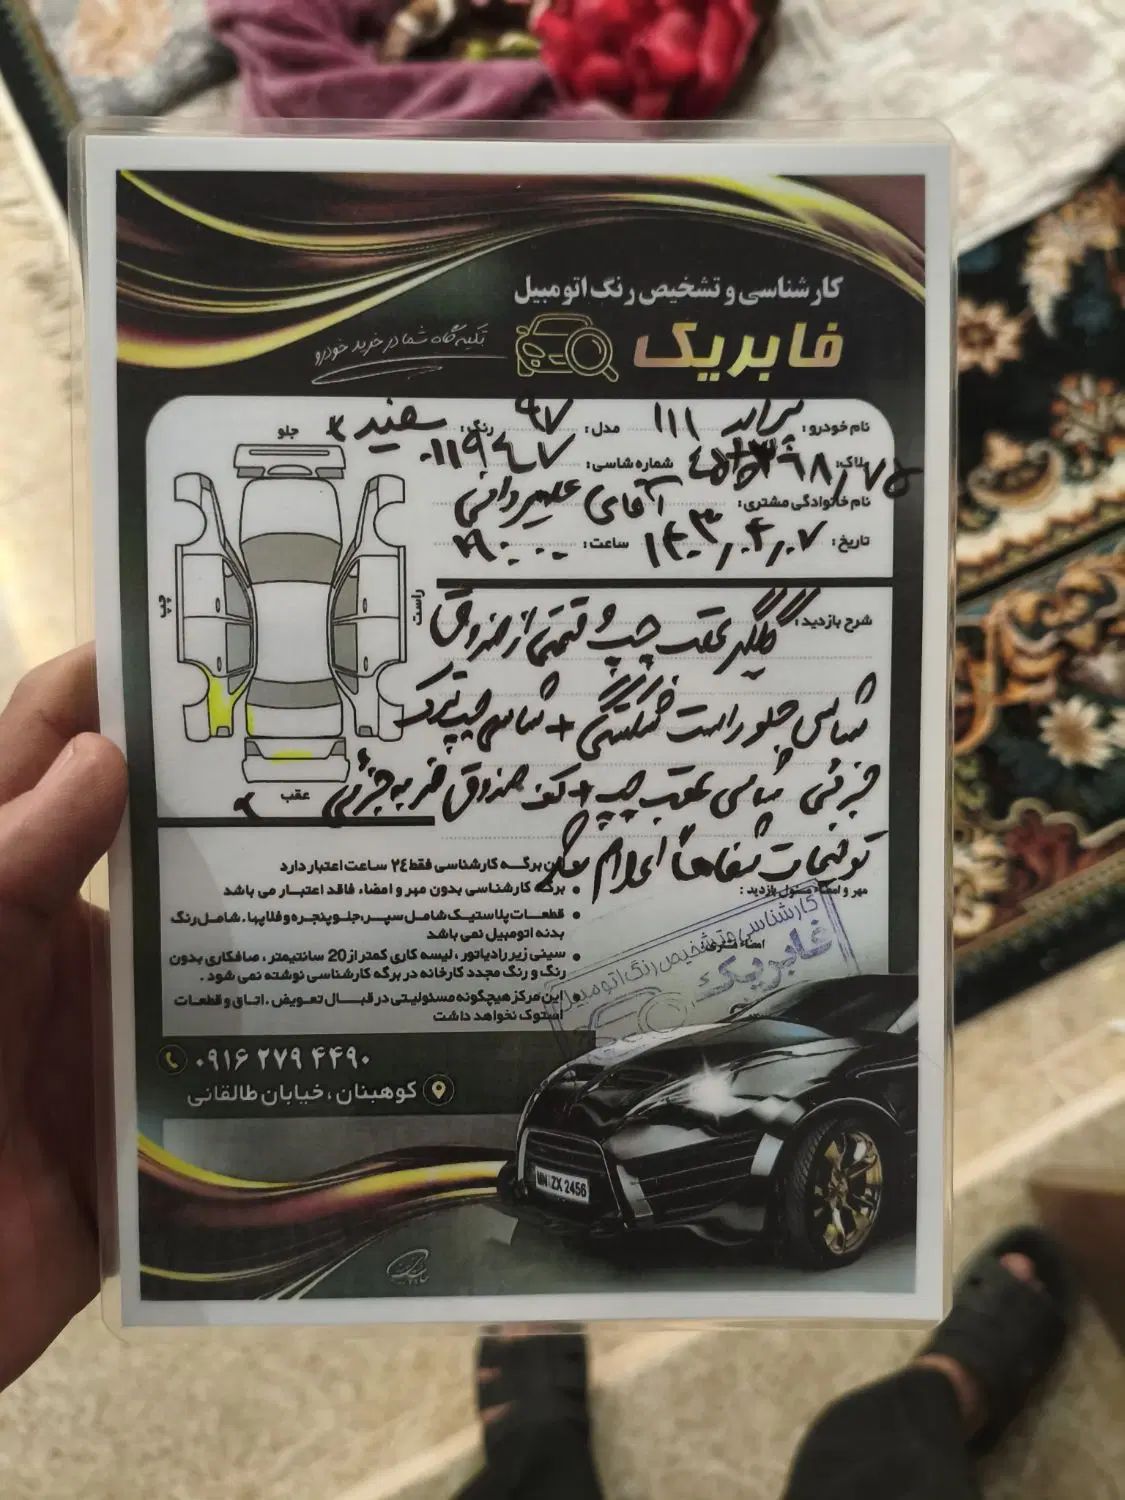 کارشناسی و تشخیص رنگ اتومبیل
فابریک
تکیه گاه شما در خرید خودرو
نام خودرو: پراید ۱۱۱ مدل: ۹۷ رنگ: سفید
پلاک: شماره شاسی:
نام خانوادگی مشتری: آقای
تاریخ: ۱۴۰۳/۰۴/۰۷ ساعت:
جلو
چپ
راست
عقب
شرح بازدید: گلگیر عقب چپ و قسمتی از صندوق
شاسی جلو راست شکستگی + شاسی چپ ترک
جزئی شاسی عقب چپ + کف صندوق ضربه جزئی
توضیحات شفاهاً اعلام شد
مهر و امضاء مسئول بازدید :
امضاء مشتری
کارشناسی و تشخیص رنگ اتومبیل
فابریک
این برگه کارشناسی فقط ۲٤ ساعت اعتبار دارد
برگه کارشناسی بدون مهر و امضاء فاقد اعتبار می باشد
قطعات پلاستیک شامل سپر، جلو پنجره و فلاپها، شامل رنگ
بدنه اتومبیل نمی باشد
سینی زیر رادیاتور، لیسه کاری کمتر از 20 سانتیمتر، صافکاری بدون
رنگ و رنگ مجدد کارخانه در برگه کارشناسی نوشته نمی شود.
این مرکز هیچگونه مسئولیتی در قبال تعویض، اتاق و قطعات
استوک نخواهد داشت
۰۹۱۶ ۲۷۹ ۴۴۹۰
کوهبنان، خیابان طالقانی
MN ZX 2456